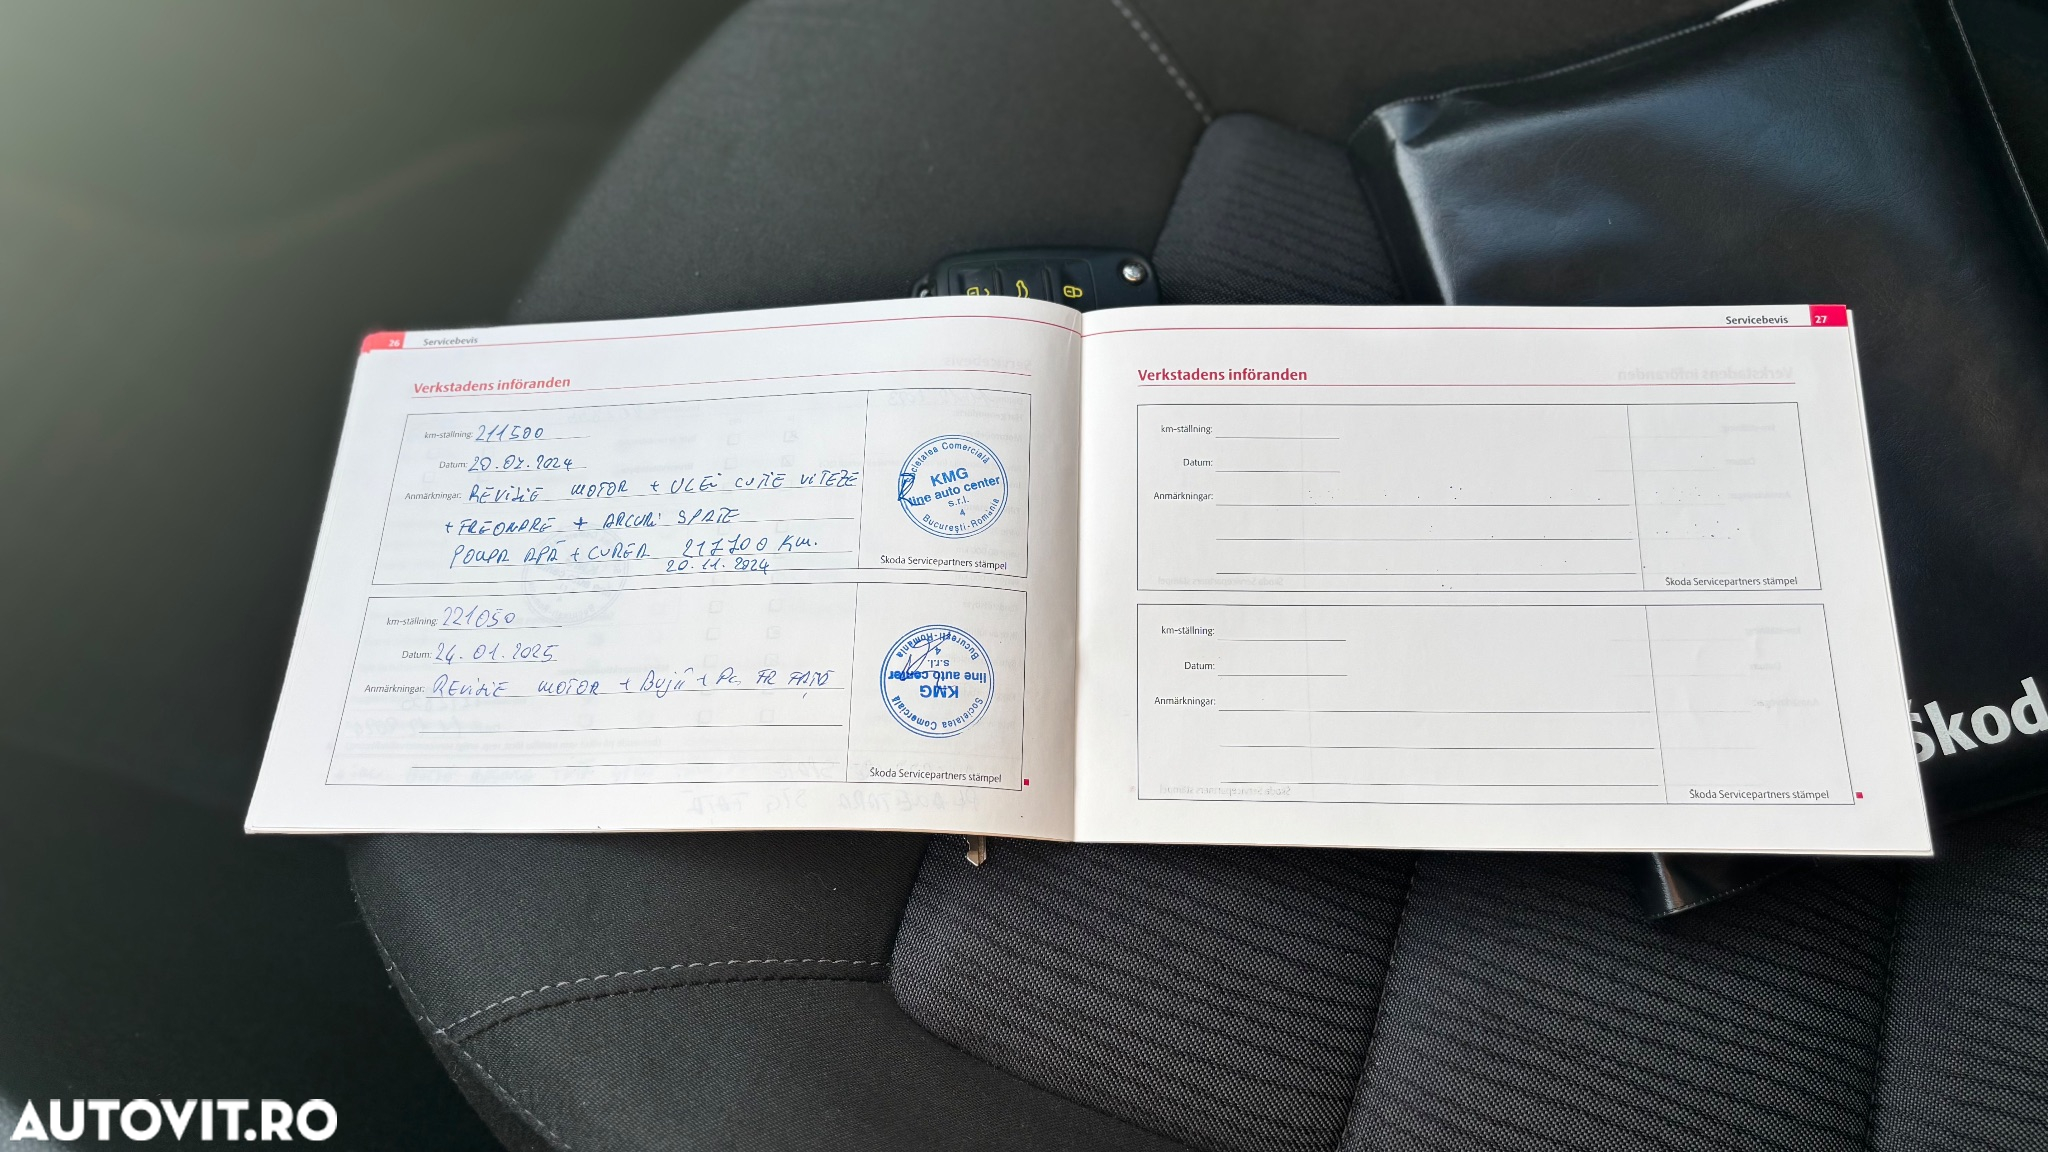 26 Servicebevis
Verkstadens införanden
km-ställning: 211500
Datum: 20.07.2024
Anmärkningar: REVIZIE MOTOR + ULEI CUTIE VITEZE
+ FR EONDRE + ARCURI SPATE
POMPA APĂ + CUREA 217700 Km.
20.11.2024
Societatea Comercială
KMG
line auto center
s.r.l.
4
Bucureşti-Romania
Škoda Servicepartners stämpel
km-ställning: 221050
Datum: 24.01.2025
Anmärkningar: REVIZIE MOTOR + Bujii + Pc FR FAȚĂ
Societatea Comercială
KMG
line auto center
s.r.l.
4
Bucureşti-Romania
Škoda Servicepartners stämpel
Servicebevis 27
Verkstadens införanden
km-ställning:
Datum:
Anmärkningar:
Škoda Servicepartners stämpel
km-ställning:
Datum:
Anmärkningar:
Škoda Servicepartners stämpel
Škod
AUTOVIT.RO